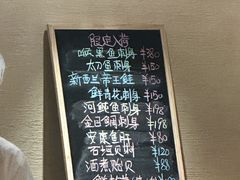 限定入荷
啫喱鱼刺身 ¥380
太刀鱼刺身 ¥150
新西兰帝王鲑 ¥150
鲜青花刺身 ¥150
河鲀鱼刺身 ¥198
金目鲷刺身 ¥198
安康鱼肝 ¥80
石垣贝刺 ¥120
酒煮贻贝 ¥88